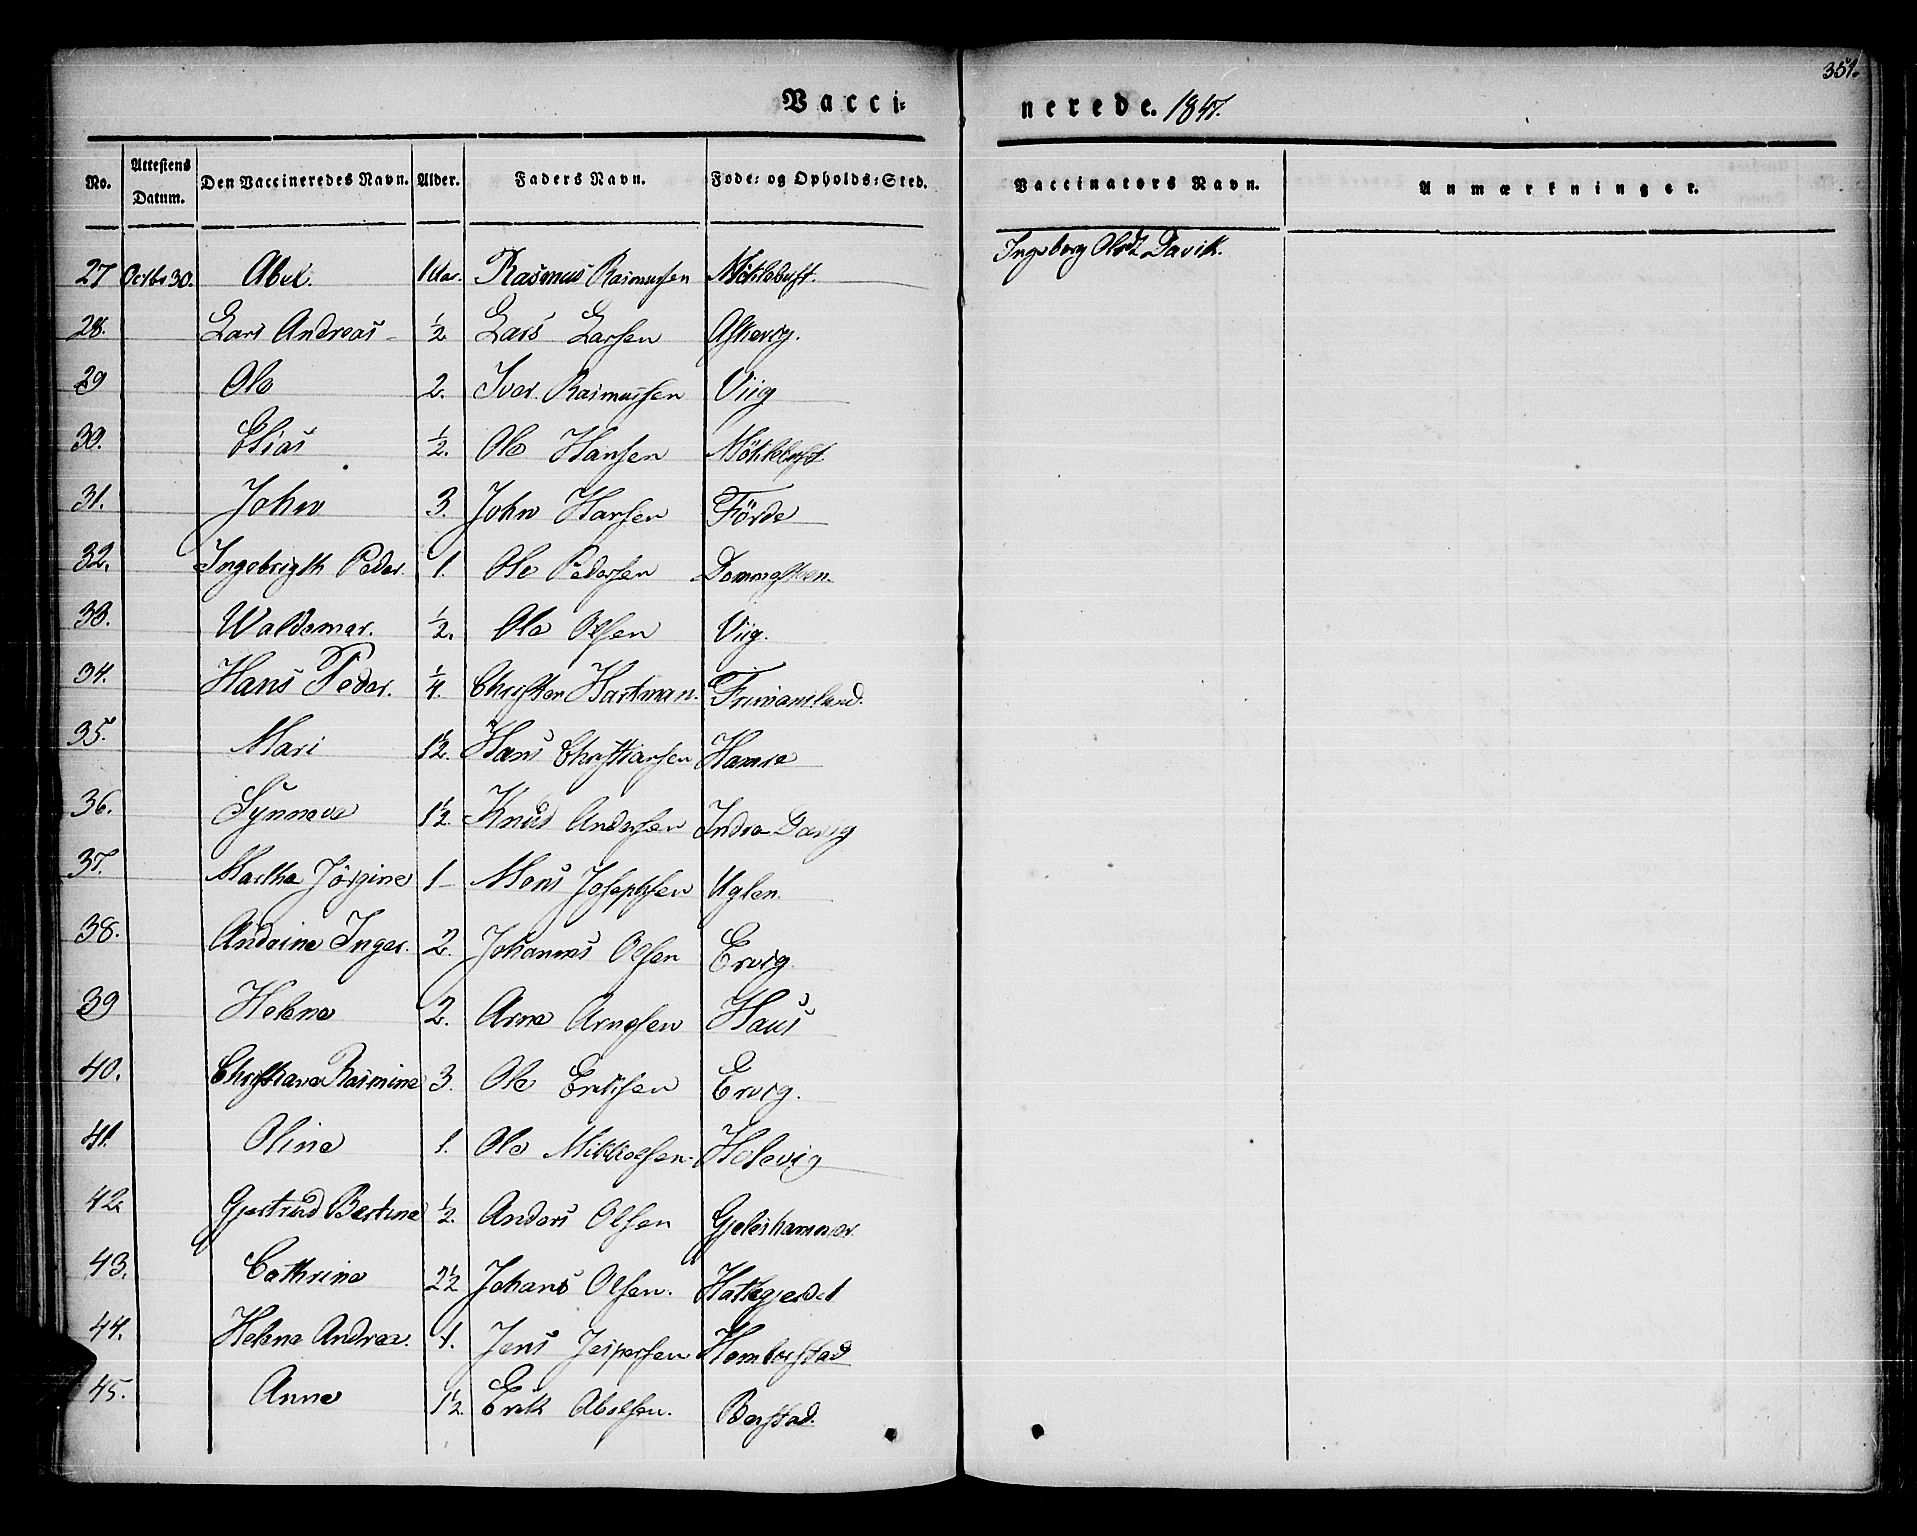 351.
Vacci-
nerede. 1847.
No. Attestens Datum. Den Vaccineredes Navn. Alder. Faders Navn. Føde- og Opholds-Sted. Vaccinators Navn. Anmærkninger.
27 Octbr 30. Abel. 1 Aar. Rasmus Rasmussen Ingeborg Davik.
28. Lars Andreas - 1/2 Lars Larsen Askevig.
29 Ole 2. Iver Rasmussen Viig
30. Elias 1/2. Ole Hansen
31. John 3. John Hansen Förde
32. Ingebrigth Peder. 1. Ole Pedersen Dommesteen.
33. Waldemar. 1/2. Ole Olsen Viig.
34. Hans Peder. 1/4. Christen Hartman.
35. Mari 1 1/2. Hans Christiansen Hamre
36. Synneve 1 1/2. Knud Andersen Indre Davig
37. Martha Jörgine 1 - Mons Josephsen Uglen.
38. Andrine Inger. 2. Johannes Olsen Ervig.
39 Helene 2. Arne Arnesen Haus
40. Christiane Rasmine 3. Ole Eriksen Ervig.
41. Oline 1. Ole Mikkelsen Holevig
42. Gjertrud Bertine 1/2. Anders Olsen Gjeleshammer
43. Cathrine 2 1/2 Johans Olsen. Hattegjerdet
44. Helene Andrea. 1. Jens Jespersen Hamborstad
45. Anne 1 1/2. Erik Abelsen. Berstad.